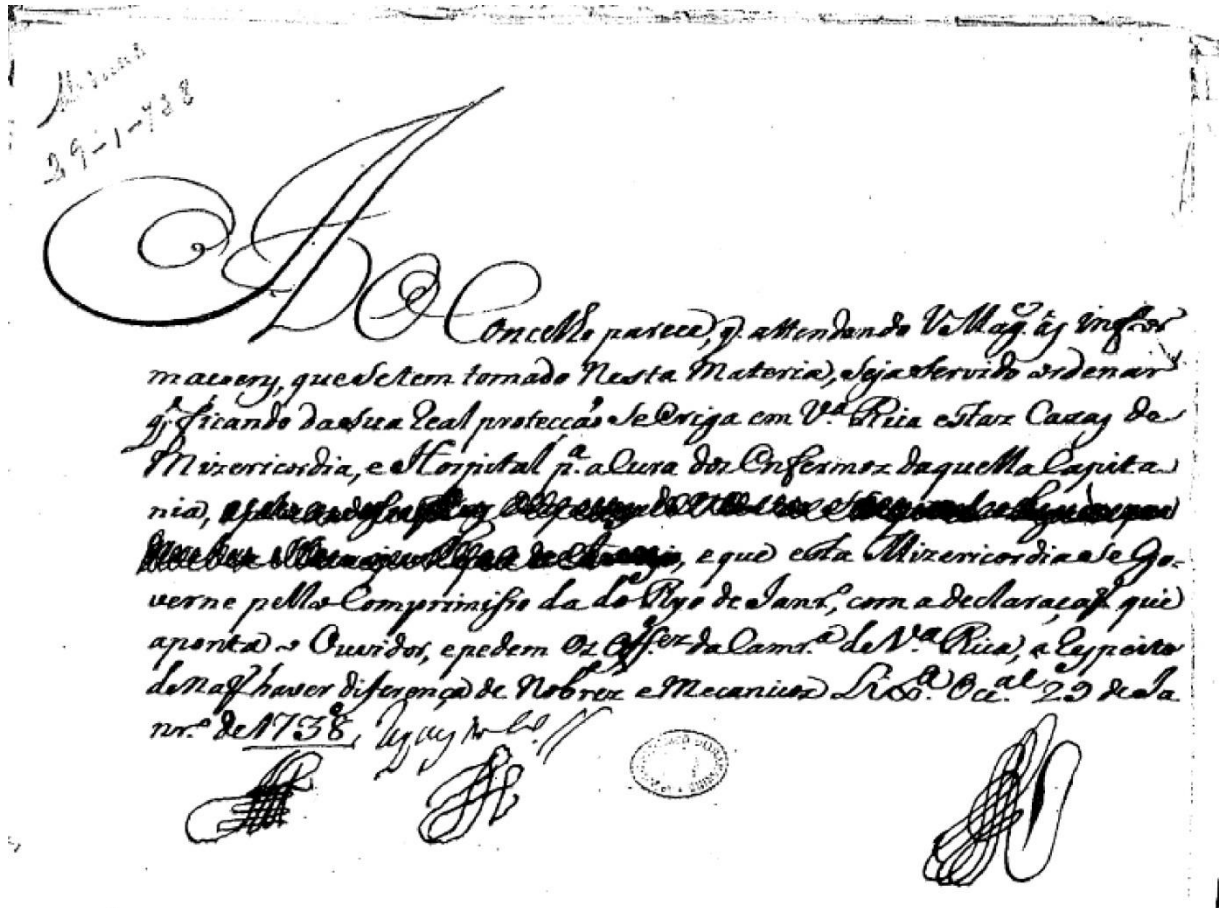 Minas
29-1-738
Ao Concelho parece, q. attendendo V. Mag.e ás infor
maçoens, que se tem tomado Nesta Materia, seja servido ordenar
q. ficando da sua Real protecção se Eriga em V.a Rica esta Caza de
Mizericordia, e Hospital p.a a Cura dos Enfermos daquella Capita
nia, e que esta Mizericordia se Go-
verne pello Comprimisso da do Ryo de Janr.o, com a declaraçaõ que
aponta o Ouvidor, e pedem os Off.es da Camr.a de V.a Rica, a Respeito
de naõ haver diferença de Nobrez e Mecanicos Lix.a Occ.al 29 de Ja
nr.o de 1738